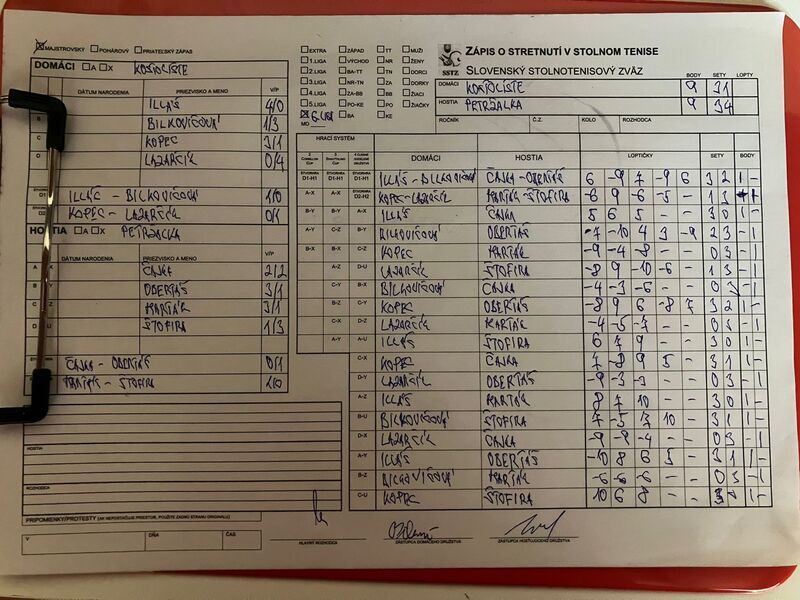 MAJSTROVSKÝ POHÁROVÝ PRIATEĽSKÝ ZÁPAS
DOMÁCI A X KOSTOLIŠTE
DÁTUM NARODENIA PRIEZVISKO A MENO V/P
ILLÁŠ 4/0
B BILKOVIČOVÁ 1/3
C KOPEC 3/1
D LAZARČÍK 0/4
ILLÁŠ - BILKOVIČOVÁ 1/0
D2 KOPEC - LAZARČÍK 0/1
HOSTIA A X PETRŽALKA
DÁTUM NARODENIA PRIEZVISKO A MENO V/P
ČAJKA 2/2
OBERTÁŠ 3/1
MARTÁK 3/1
ŠTOFIRA 1/3
ČAJKA - OBERTÁŠ 0/1
MARTÁK - ŠTOFIRA 1/0
HOSTIA
ROZHODCA
PRIPOMIENKY/PROTESTY (AK NEPOSTAČUJE PRIESTOR, POUŽITE ZADNÚ STRANU ORIGINÁLU)
V DŇA ČAS
EXTRA ZÁPAD TT MUŽI
1.LIGA VÝCHOD NR ŽENY
2.LIGA BA-TT TN DORCI
3.LIGA NR-TN ZA DORKY
4.LIGA ZA-BB BB ŽIACI
5.LIGA PO-KE PO ŽIAČKY
6.LIGA BA KE
MO
ZÁPIS O STRETNUTÍ V STOLNOM TENISE
SSTZ SLOVENSKÝ STOLNOTENISOVÝ ZVÄZ
BODY SETY LOPTY
DOMÁCI KOSTOLIŠTE 9 31
HOSTIA PETRŽALKA 9 34
ROČNÍK Č.Z. KOLO ROZHODCA
HRACÍ SYSTÉM
DOMÁCI HOSTIA LOPTIČKY SETY BODY
D1-H1 D1-H1 D1-H1 ILLÁŠ - BILKOVIČOVÁ ČAJKA - OBERTÁŠ 6 -9 7 -9 6 3 2 1 -
A-X A-X D2-H2 KOPEC - LAZARČÍK MARTÁK - ŠTOFIRA -6 9 -6 -5 - 1 3 - 1
B-Y B-Y A-X ILLÁŠ ČAJKA 5 6 5 - - 3 0 1 -
A-Y C-Z B-Y BILKOVIČOVÁ OBERTÁŠ -7 -10 4 3 -9 2 3 - 1
B-X B-X C-Z KOPEC MARTÁK -9 -4 -8 - - 0 3 - 1
A-Z D-U LAZARČÍK ŠTOFIRA -8 9 -10 -6 - 1 3 - 1
C-Y B-X BILKOVIČOVÁ ČAJKA -4 -3 -6 - - 0 3 - 1
B-Z C-Y KOPEC OBERTÁŠ -8 9 6 -8 7 3 2 1 -
C-X D-Z LAZARČÍK MARTÁK -4 -5 -7 - - 0 3 - 1
A-Y A-U ILLÁŠ ŠTOFIRA 6 7 9 - - 3 0 1 -
C-X KOPEC ČAJKA 7 -8 9 5 - 3 1 1 -
D-Y LAZARČÍK OBERTÁŠ -9 -3 -3 - - 0 3 - 1
A-Z ILLÁŠ MARTÁK 8 7 10 - - 3 0 1 -
B-U BILKOVIČOVÁ ŠTOFIRA 7 -5 7 10 - 3 1 1 -
D-X LAZARČÍK ČAJKA -9 -9 -4 - - 0 3 - 1
A-Y ILLÁŠ OBERTÁŠ -10 8 6 5 - 3 1 1 -
B-Z BILKOVIČOVÁ MARTÁK -6 -6 -6 - - 0 3 - 1
C-U KOPEC ŠTOFIRA 10 6 8 - - 3 0 1 -
HLAVNÝ ROZHODCA ZÁSTUPCA DOMÁCEHO DRUŽSTVA ZÁSTUPCA HOSŤUJÚCEHO DRUŽSTVA